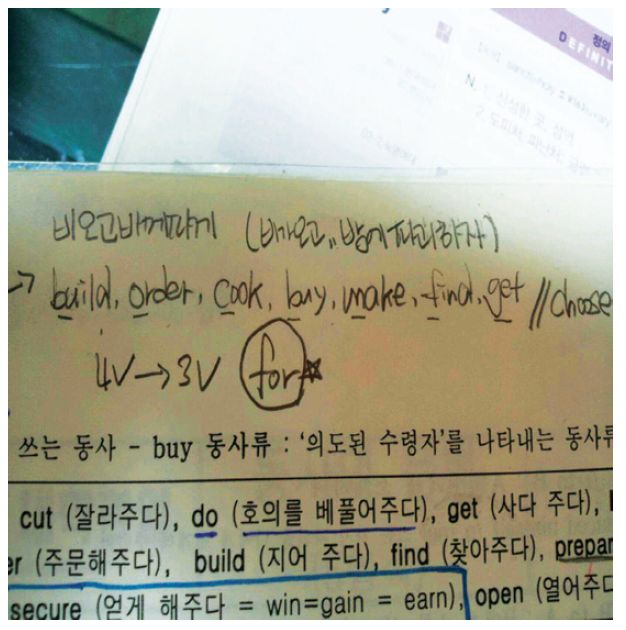 정의
DEFINIT
N. 1. 신성한 곳, 성역
2. 도피처, 피난처,
(비가오고,, 밤에 파괴하자)
→ build, order, cook, buy, make, find, get // choose
4V → 3V for ☆
쓰는 동사 - buy 동사류 : '의도된 수령자'를 나타내는 동사류
cut (잘라주다), do (호의를 베풀어주다), get (사다 주다),
er (주문해주다), build (지어 주다), find (찾아주다), prepar
secure (얻게 해주다 = win=gain = earn), open (열어주다